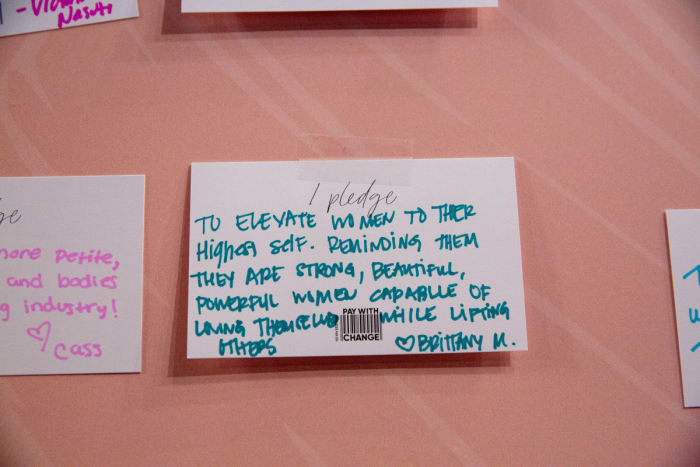 - Victo
Nasuti
I pledge
TO ELEVATE WOMEN TO THER
HigHEst SElf. REMINDING THEM
THEY ARE STRONG, BEAUTIFUL,
POWERFUL WOMEN CAPABLLE OF
LOVING THEMSELVES WHILE LIFTING
OTHERS
♡ BRITTANY M.
PAY WITH
CHANGE
more Petite,
and bodies
g industry!
♡ Cass